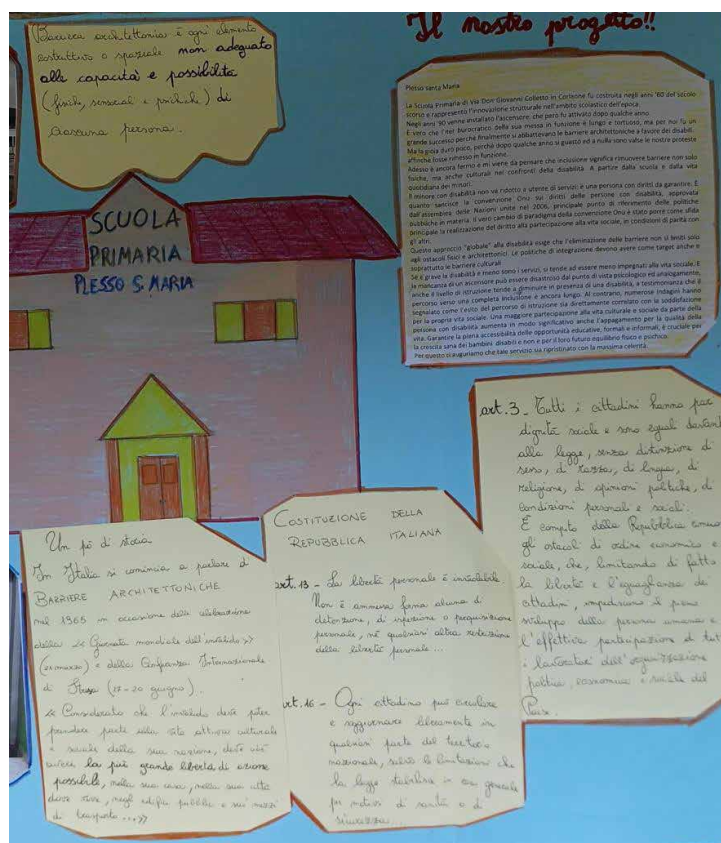 Barriera architettonica è ogni elemento
costruttivo o spaziale non adeguato
alle capacità e possibilità
(fisiche, sensoriali e psichiche) di
ciascuna persona...
Il nostro progetto!!
Plesso Santa Maria
La Scuola Primaria di via Don Giovanni Colletto in Corleone fu costruita negli anni '60 del secolo
scorso e rappresentò l'innovazione strutturale nell'ambito scolastico dell'epoca.
Negli anni '90 venne installato l'ascensore, che però fu attivato dopo qualche anno.
È vero che l'iter burocratico della sua messa in funzione è lungo e tortuoso, ma per noi fu un
grande successo perché finalmente si abbattevano le barriere architettoniche a favore dei disabili.
Ma la gioia durò poco, perché dopo qualche anno si guastò ed a nulla sono valse le nostre proteste
affinché fosse rimesso in funzione.
Adesso è ancora fermo e mi viene da pensare che inclusione significa rimuovere barriere non solo
fisiche, ma anche culturali nei confronti della disabilità. A partire dalla scuola e dalla vita
quotidiana dei minori.
Il minore con disabilità non va ridotto a utente di servizi: è una persona con diritti da garantire. È
quanto sancisce la convenzione Onu sui diritti delle persone con disabilità, approvata
dall'assemblea delle Nazioni unite nel 2006, principale punto di riferimento delle politiche
pubbliche in materia. Il vero cambio di paradigma della convenzione Onu è stato porre come sfida
principale la realizzazione del diritto alla partecipazione alla vita sociale, in condizioni di parità con
gli altri.
Questo approccio "globale" alla disabilità esige che l'eliminazione delle barriere non si limiti solo
agli ostacoli fisici e architettonici. Le politiche di integrazione devono avere come target anche e
soprattutto le barriere culturali
Se è grave la disabilità e meno sono i servizi, si tende ad essere meno impegnati alla vita sociale. E
la mancanza di un ascensore può essere disastroso dal punto di vista psicologico ed analogamente,
anche il livello di istruzione tende a diminuire in presenza di una disabilità, a testimonianza che il
percorso verso una completa inclusione è ancora lungo. Al contrario, numerose indagini hanno
segnalato come l'esito del percorso di istruzione sia direttamente correlato con la soddisfazione
per la propria vita sociale. Una maggiore partecipazione alla vita culturale e sociale da parte della
persona con disabilità aumenta in modo significativo anche l'appagamento per la qualità della
vita. Garantire la piena accessibilità delle opportunità educative, formali e informali, è cruciale per
la crescita sana dei bambini disabili e non e per il loro futuro equilibrio fisico e psichico.
Per questo ci auguriamo che tale servizio sia ripristinato con la massima celerità.
SCUOLA
PRIMARIA
PLESSO S. MARIA
art. 3 - Tutti i cittadini hanno pari
dignità sociale e sono eguali davanti
alla legge, senza distinzione di
sesso, di razza, di lingua, di
religione, di opinioni politiche, di
condizioni personali e sociali.
È compito della Repubblica
gli ostacoli di ordine economico e
sociale, che, limitando di fatto
la libertà e l'eguaglianza dei
cittadini, impediscono il pieno
sviluppo della persona umana e
l'effettiva partecipazione di
i lavoratori all'organizzazione
politica, economica e sociale del
Paese.
Un pò di storia
In Italia si comincia a parlare di
BARRIERE ARCHITETTONICHE
nel 1965 in occasione della celebrazione
della << Giornata mondiale dell'invalido >>
(21 marzo) e della Conferenza Internazionale
di Stresa (17-20 giugno).
<< Considerato che l'invalido deve poter
prendere parte alla vita attiva culturale
e sociale della sua nazione, deve
avere la più grande libertà di azione
possibile, nella sua casa, nella sua città
dove vive, negli edifici pubblici e sui mezzi
di trasporto...>>
COSTITUZIONE DELLA
REPUBBLICA ITALIANA
art. 13 - La libertà personale è inviolabile.
Non è ammessa forma alcuna di
detenzione, di ispezione o perquisizione
personale, né qualsiasi altra restrizione
della libertà personale...
art. 16 - Ogni cittadino può circolare
e soggiornare liberamente in
qualsiasi parte del territorio
nazionale, salvo le limitazioni che
la legge stabilisce in via generale
per motivi di sanità o di
sicurezza...